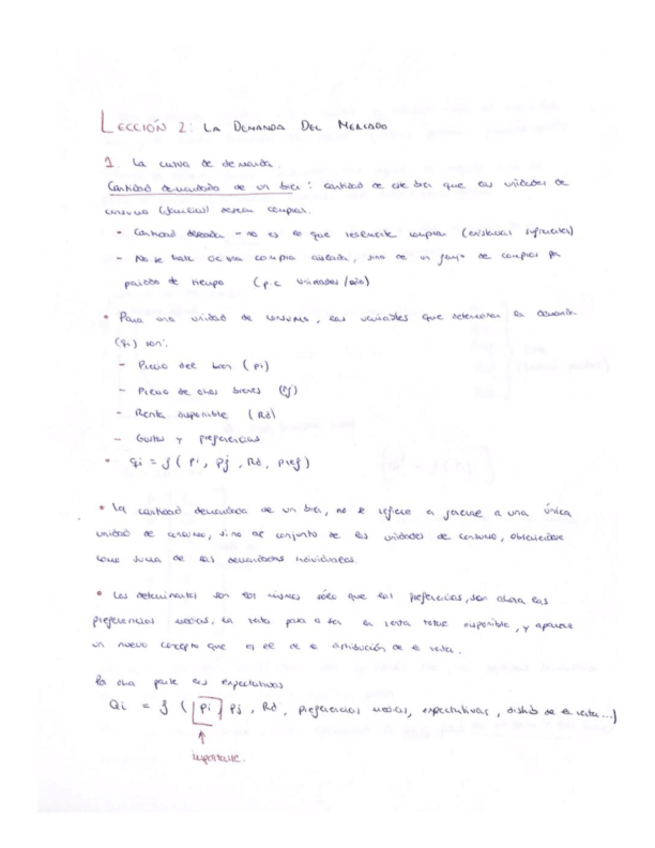 LECCIÓN 2: LA DEMANDA DEL MERCADO
1. La curva de demanda.
Cantidad demandada de un bien: cantidad de este bien que las unidades de
consumo (familias) desean comprar.
- Cantidad deseada - no es lo que realmente compran (existencias suficientes)
- No se trata de una compra aislada, sino de un flujo de compras por
periodo de tiempo (p.e unidades/año)
• Para una unidad de consumo, las variables que determinan la demanda
(qi) son:
- Precio del bien (pi)
- Precio de otros bienes (pj)
- Renta disponible (Rd)
- Gustos y preferencias
• qi = f (pi, pj, Rd, pref)
• La cantidad demandada de un bien, no se refiere a a una única
unidad de consumo, sino al conjunto de las unidades de consumo, obteniéndose
como suma de las demandas individuales.
• Los determinantes son los mismos sólo que las preferencias, son ahora las
preferencias medias, la renta pasa a ser la renta total disponible, y aparece
un nuevo concepto que es el de la distribución de la renta.
Por otra parte las expectativas
Qi = f (pi, pj, Rd, preferencias medias, expectativas, distrib de la renta...)
↑
importante.